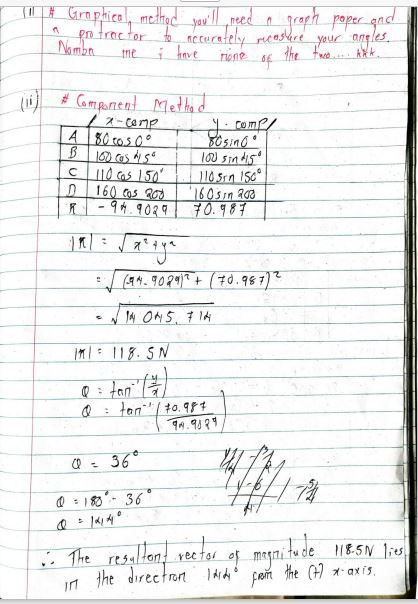 (ii) # Graphical method you'll need a graph paper and
a protractor to accurately measure your angles.
Nomba me i have none of the two.... kkk.
(ii) # Component Method
x-comp y-comp
A 80 cos 0° 80 sin 0°
B 100 cos 45° 100 sin 45°
C 110 cos 150° 110 sin 150°
D 160 cos 200 160 sin 200
R -94.9029 70.987
|R| = √x² + y²
= √(94.9029)² + (70.987)²
= √14 045.714
|R| = 118.5N
Q = tan⁻¹(y/x)
Q = tan⁻¹(70.987/94.9029)
Q = 36°
Q = 180° - 36°
Q = 144°
∴ The resultant vector of magnitude 118.5N lies
in the direction 144° from the (+) x-axis.